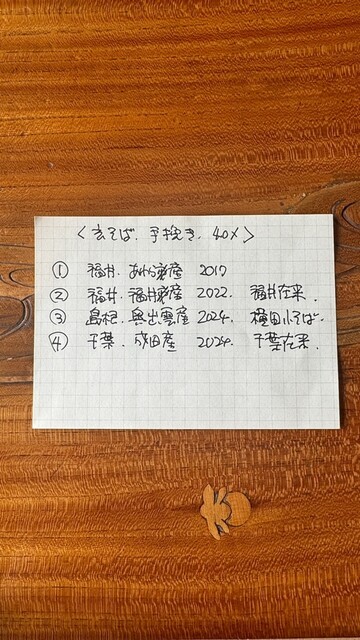 〈玄そば、手挽き、40メ〉
① 福井、あわら産 2017
② 福井、福井産 2022、福井在来、
③ 島根、奥出雲産 2024、横田小そば、
④ 千葉、成田産 2024、千葉在来、